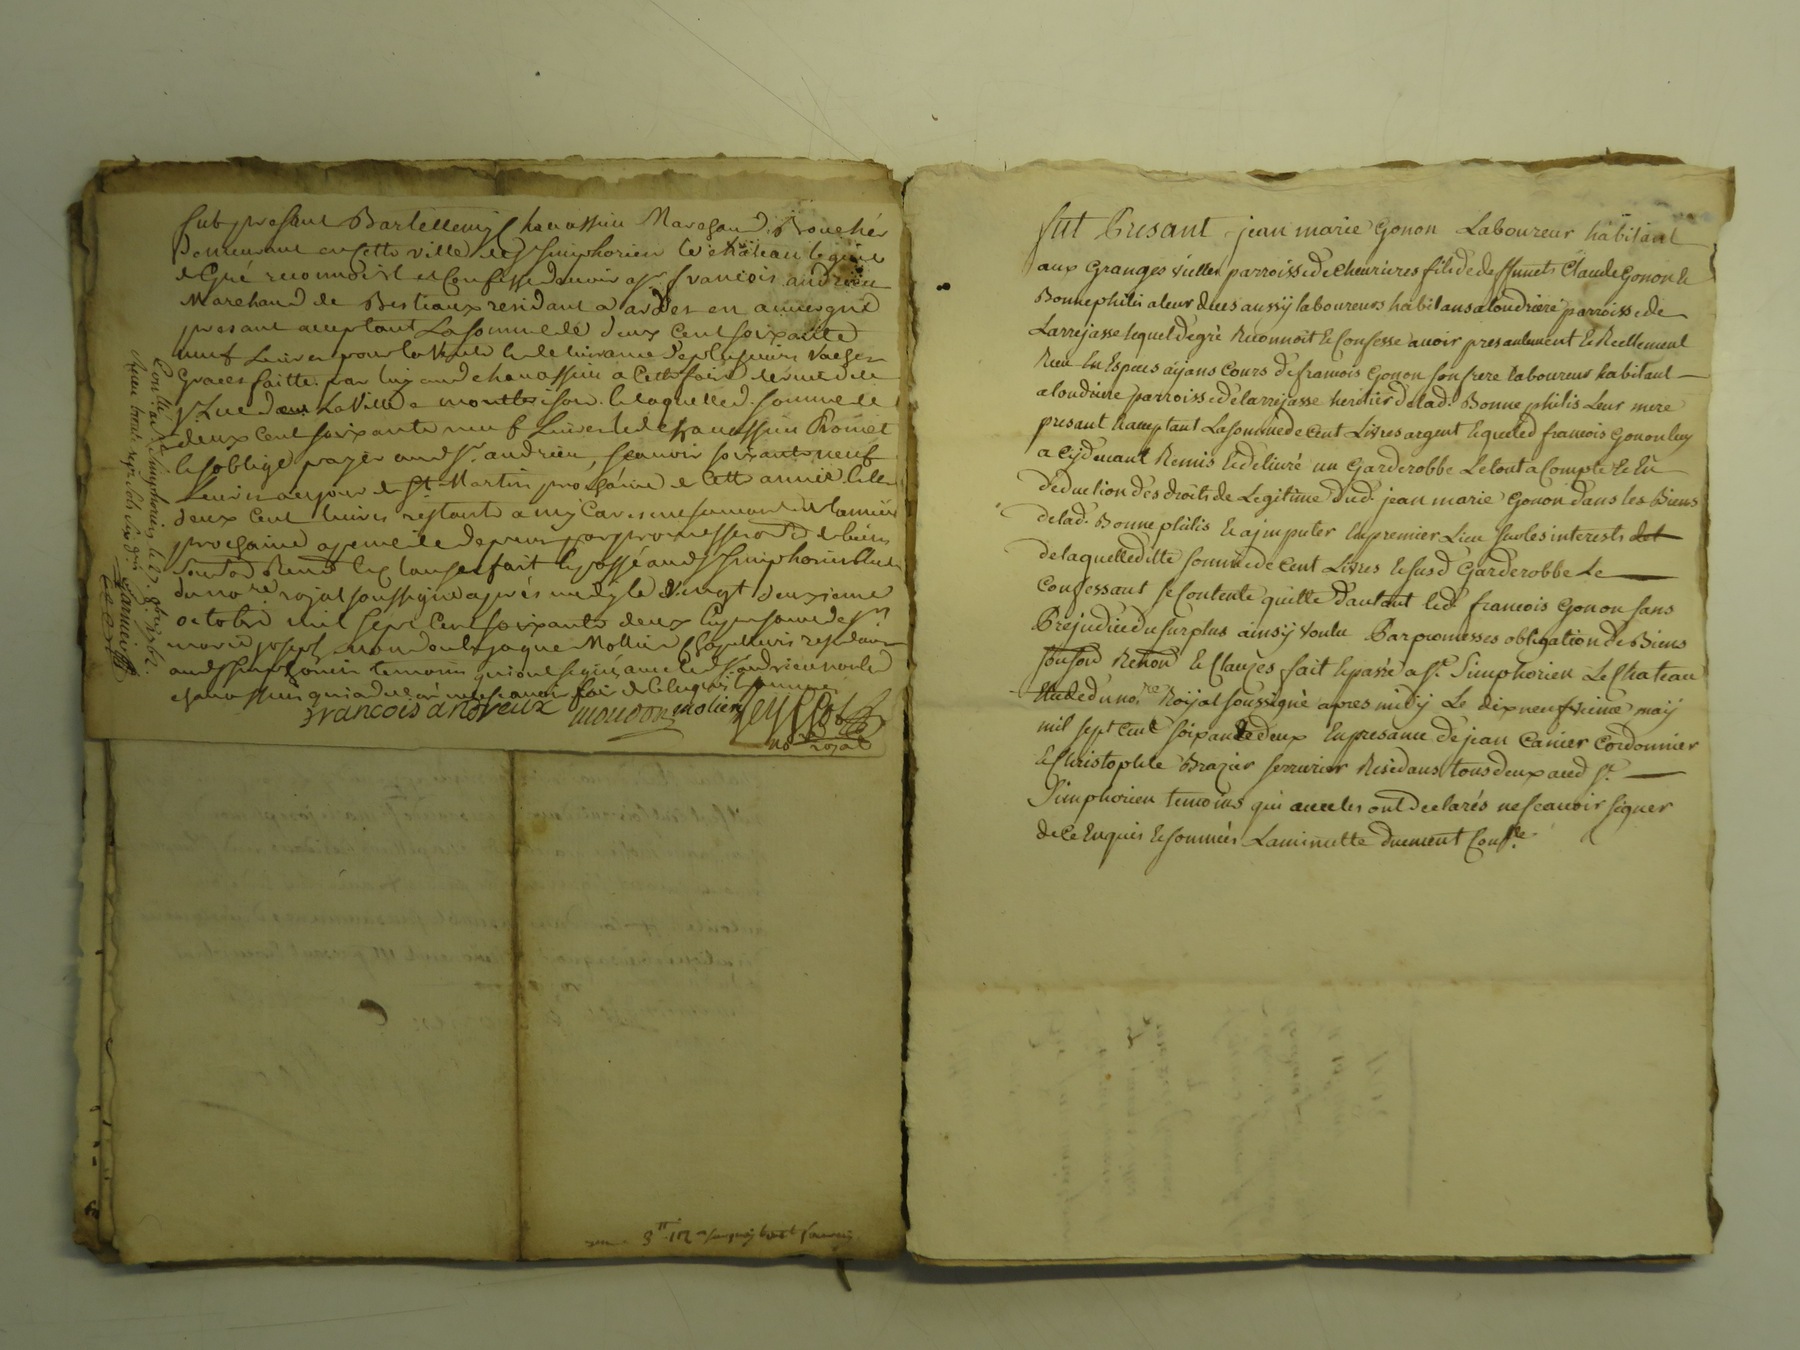 fut present Bartellemy Chanassieu Marchand Boucher
demeurant en cette ville de St simphorien le château lequel
de Gré reconnoist et Confesse devoir a sr francois andrieu
Marchand de Bestiaux residant a ardes en auvergne
present acceptant La somme de deux cent soixante
neuf Livres pour la vente et delivrance de plusieurs vaches
Grasses faitte par luy aud chanassieu a cette foire derniere de
st Luc dans La Ville a montbrison laquelle d. somme de
deux cent soixante neuf Livres led chanassieu Promet
et s'oblige payer aud sr. andrieu, scavoir soixante neuf
Livres au jour de St Martin prochaine de cette année et les
deux cent livres restante a my Caresme suivant de lannée
prochaine a peine de depens par promesse obl. de biens
soum. Renon. et clauses fait et passé aud st simphorien Etude
du nore royal soussigné après midy le vingt deuxieme
octobre mil sept cent soixante deux en presence de sr
marie joseph mondon et jaque Mollier Chapelliers residants
aud st simphorien temoins qui ont signé avec led sr andrieu non led
chanassieu qui a declaré ne scavoir signer de ce enquis et sommé
francois andrieux mondon molier
nore royal
Conlle. a St Simphorien le 27 8bre 1762.
Reçu trente sept sols six d.
fut Present jean marie Gonon Laboureur habitant
aux Granges parroisse de Chevrieres fils de deffunts Claude Gonon et
Bonne philis a leur deces aussy laboureurs habitans a loudriere parroisse de
Larrejasse lequel de gré Reconnoit et Confesse avoir presantement et Reellement
Receu En Especes aÿans Cours de francois Gonon son frere laboureur habitant
a loudriere parroisse de larrejasse heritier de lad. Bonne philis Leur mere
presant et acceptant La somme de Cent Livres argent lequel led francois Gonon luy
a cÿ devant Remis et delivré un Garderobbe Le tout a Compte et En
deduction des droits de Legitime dud. jean marie Gonon dans les Biens
de lad. Bonne philis et a imputer en premier Lieu sur les interests
de laquelle ditte somme de Cent Livres et susd Garderobbe Le
Confessant se Contente quitte d'autant led. francois Gonon sans
Prejudice du surplus ainsÿ voulu Par promesses obligation de Biens
soum. Renon. et Clauses fait et passé a St. Simphorien Le Chateau
Etude du nore. Roÿal soussigné apres midÿ Le dix neufvieme maÿ
mil sept cent soixante deux En presance de jean Canier Cordonnier
et Christophle Brazier serrurier Residans tous deux aud St.
Simphorien temoins qui avec les ont declarés ne scavoir signer
de ce Enquis et sommés La minutte duement Conlle.